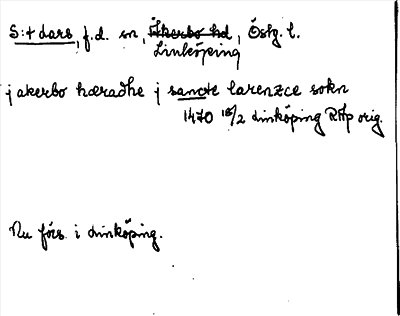 S:t Lars, f.d. sn, Åkerbo hd, Östg. l.
Linköping
j akerbo hæradhe j sancte larenzce sokn
1470 18/2 Linköping RAp orig.
Nu förs. i Linköping.